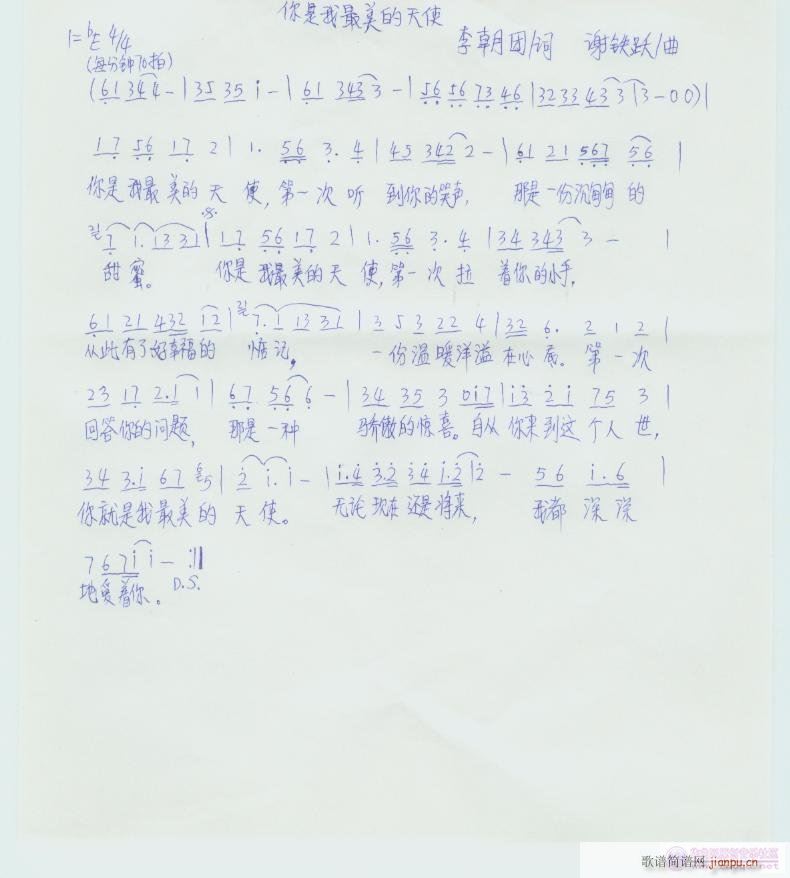 你是我最美的天使
1=♭E 4/4 李朝团/词 谢铁跃/曲
(每分钟70拍)
(61 344 - | 35 35 i - | 61 3433 - | 56 56 73 46 | 3233 433 | 3 - 0 0) |
17 56 17 2 | 1. 56 3. 4 | 45 342 2 - | 61 21 567 56 |
你是我最美的天使,第一次听到你的笑声, 那是一份沉甸甸的
7 1. 13 31 | 17 56 17 2 | 1. 56 3. 4 | 34 343 3 - |
甜蜜。 你是我最美的天使,第一次拉着你的小手,
61 21 432 12 | 7. 1 13 31 | 3 5 3 22 4 | 32 6. 2 1 2 |
从此有了好幸福的惦记, 一份温暖洋溢在心底。第一次
23 17 2.1 1 | 67 56 6 - | 34 35 3 0i7 | i3 2i 75 3 |
回答你的问题, 那是一种 骄傲的惊喜。自从你来到这个人世,
34 3.i 67 5 | 2 i. i - | i.4 3.2 34 i.2 | 2 - 56 i.6 |
你就是我最美的天使。 无论现在还是将来, 我都深深
7 67i i - :||
地爱着你。 D.S.
歌谱简谱网 jianpu.cn